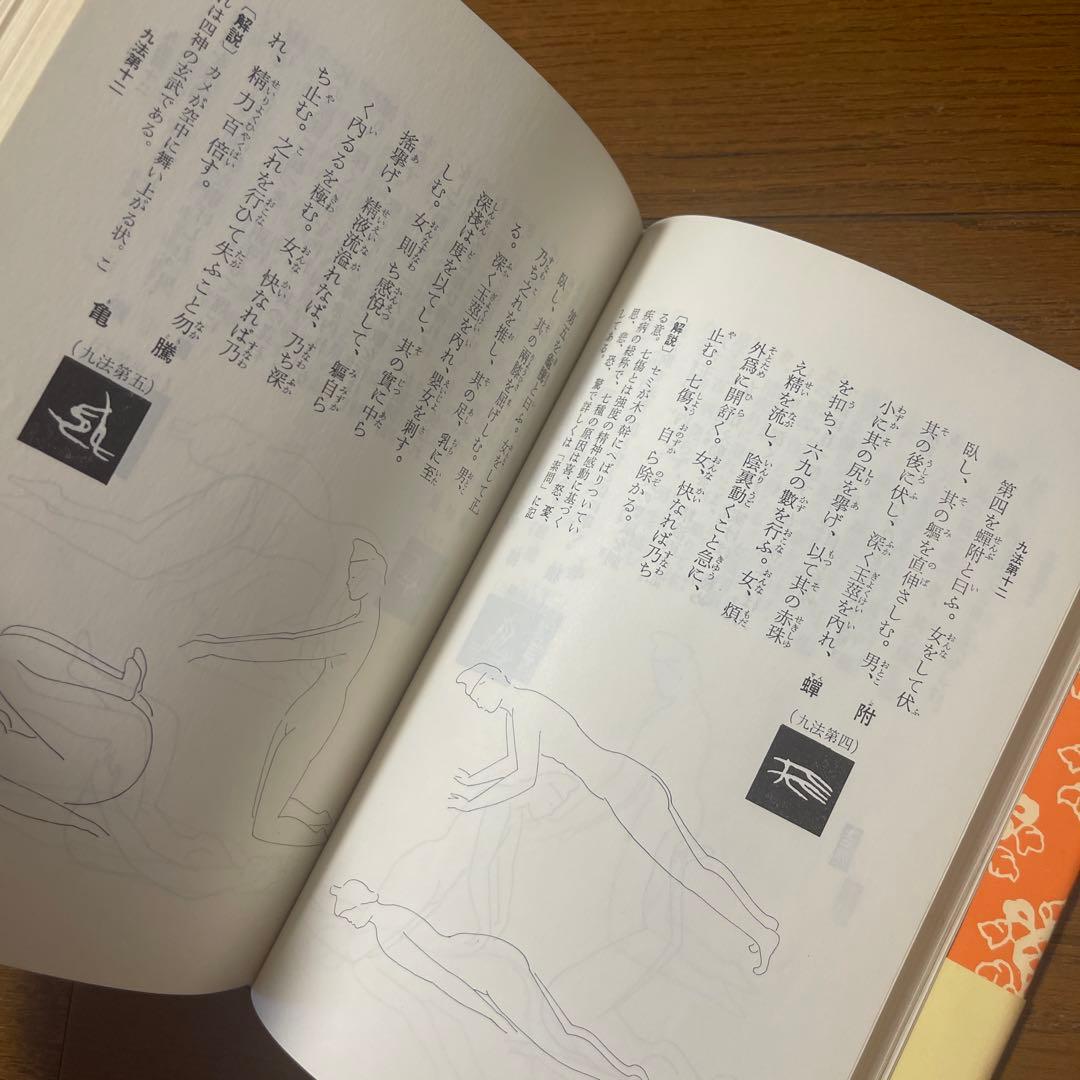 九法第十二
蟬附
(九法第四)
第四を蟬附と曰ふ。女をして伏
臥し、其の軀を直伸さしむ。男、
其の後に伏し、深く玉莖を內れ、
小に其の尻を擧げ、以て其の赤珠
を扣ち、六九の數を行ふ。女、煩
え精を流し、陰裏動くこと急に、
外爲に開舒く。女、快なれば乃ち
止む。七傷、自ら除かる。
〔解説〕 セミが木の幹にへばりついてい
る意。 七傷とは強度の精神感動に基づく
疾病の総称で、七種の原因は喜、怒、憂、
思、悲、恐、驚で詳しくは「素問」に記
してある。
亀騰
(九法第五)
第五を龜騰と曰ふ。女をして正
臥し、其の兩膝を屈げしむ。男、
乃ち之れを推し、其の足、乳に至
る。深く玉莖を內れ、嬰女を刺す。
深淺は度を以てし、其の實に中ら
しむ。女、則ち感悅して、軀自ら
搖擧げ、精液流溢れなば、乃ち深
く內るるを極む。女、快なれば乃
ち止む。之れを行ひて失ふこと勿
れ、精力百倍す。
〔解説〕 カメが空中に舞い上がる状。こ
れは四神の玄武である。
九法第十二